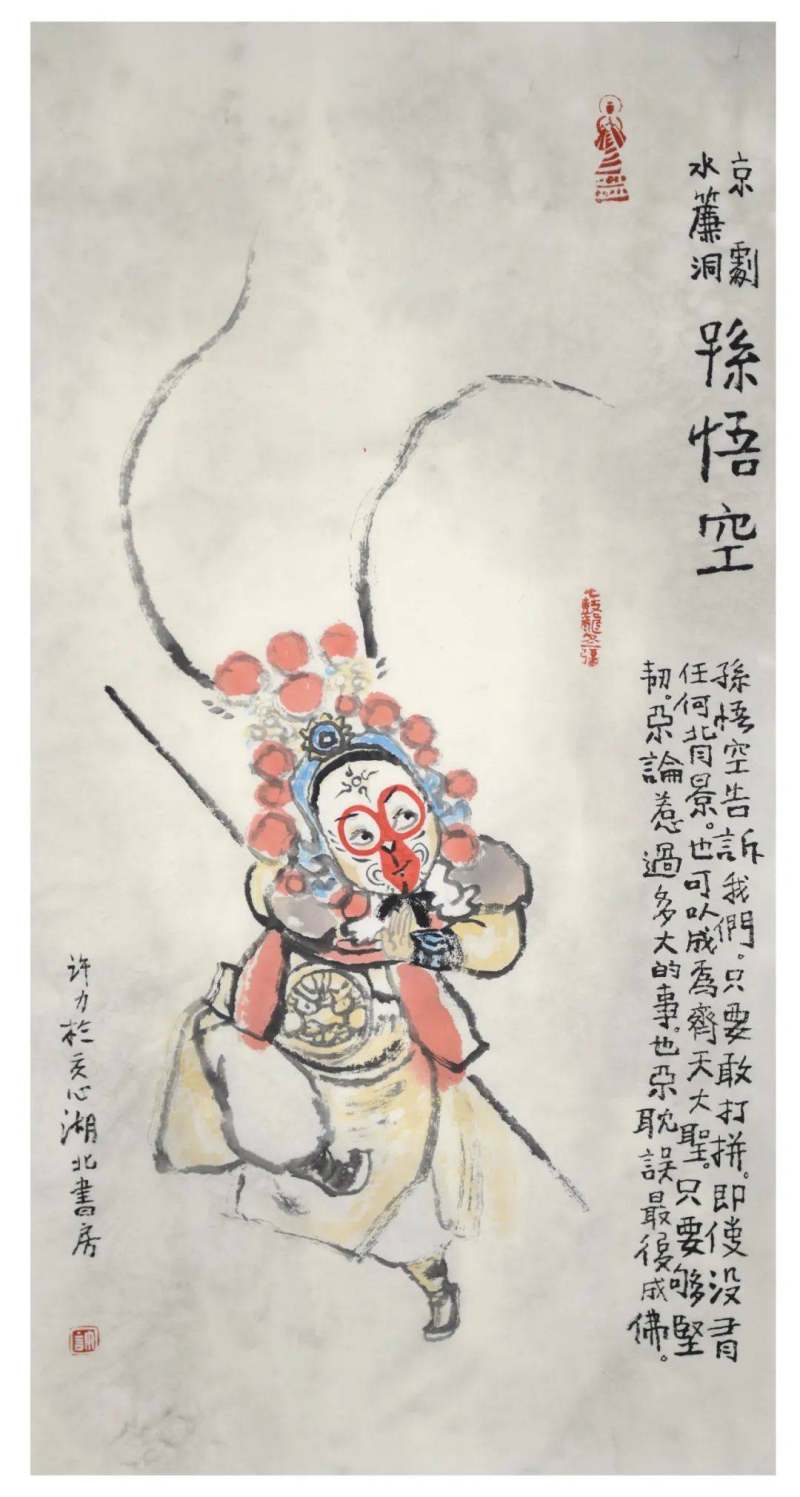 京劇
水簾洞
孫悟空
孫悟空告訴我們。只要敢打拼。即使没有
任何背景。也可以成為齊天大聖。只要夠堅
韧。不論惹過多大的事。也不耽誤最後成佛。
许力於心湖北書房